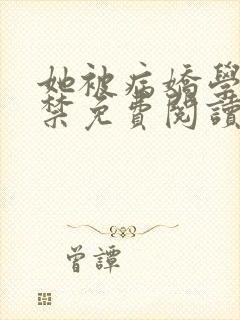 她被病嬌學
禁免費閱讀
曾譚